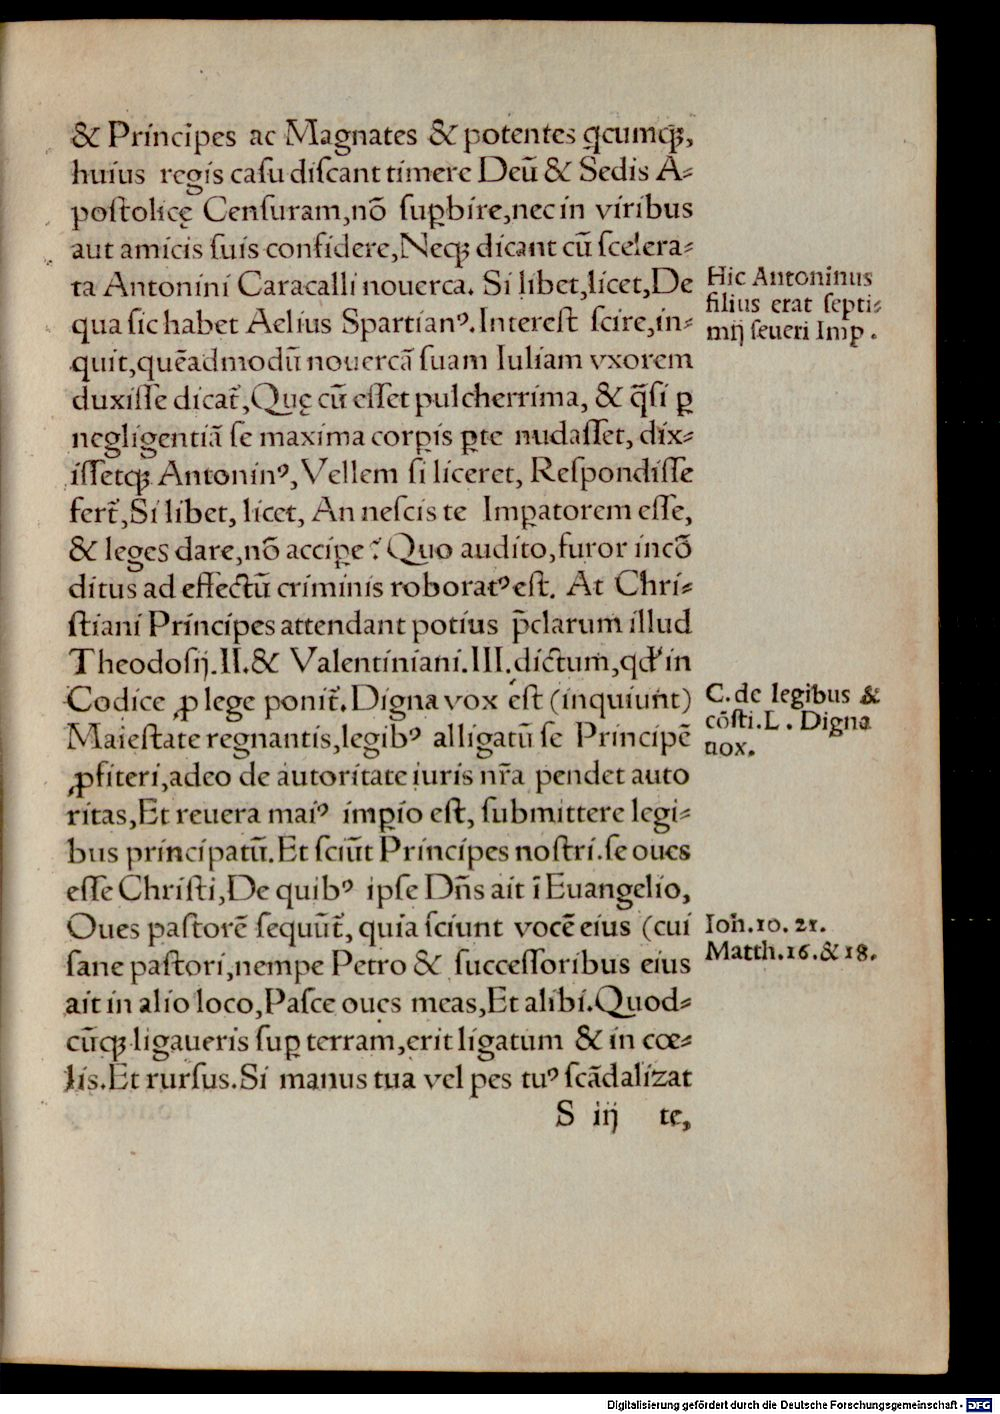 & Principes ac Magnates & potentes qcumqꝫ,
huius regis casu discant timere Deū & Sedis A-
postolicę Censuram, nō supbire, nec in viribus
aut amicis suis confidere, Neqꝫ dicant cū scelera-
ta Antonini Caracalli nouerca. Si libet, licet, De
qua sic habet Aelius Spartianꝰ. Interest scire, in-
quit, quēadmodū nouercā suam Iuliam vxorem
duxisse dicat̃, Quę cū esset pulcherrima, & q̃si ꝑ
negligentiā se maxima corꝑis ꝑte nudasset, dix-
issetqꝫ Antoninꝰ, Vellem si liceret, Respondisse
fert̃, Si libet, licet, An nescis te Imꝑatorem esse,
& leges dare, nō acciꝑe? Quo audito, furor incō
ditus ad effectū criminis roboratꝰ est. At Chri-
stiani Principes attendant potius p̄clarum illud
Theodosij. II. & Valentiniani. III. dictum, qd' in
Codice ꝓ lege ponit̃. Digna vox est (inquiunt)
Maiestate regnantis, legibꝰ alligatū se Principē
ꝓfiteri, adeo de autoritate iuris nr̃a pendet auto
ritas, Et reuera maiꝰ imꝑio est, submittere legi-
bus principatū. Et sciūt Principes nostri. se oues
esse Christi, De quibꝰ ipse Dn̄s ait ī Euangelio,
Oues pastorē sequūt̃, quia sciunt vocē eius (cui
sane pastori, nempe Petro & successoribus eius
ait in alio loco, Pasce oues meas, Et alibi. Quod-
cūqꝫ ligaueris suꝑ terram, erit ligatum & in cœ-
lis. Et rursus. Si manus tua vel pes tuꝰ scādalizat
S iij te,
Hic Antoninus
filius erat septi-
mij seueri Imp.
C. de legibus &
cōsti. L. Digna
uox.
Ioh. 10. 21.
Matth. 16. & 18.
Digitalisierung gefördert durch die Deutsche Forschungsgemeinschaft - DFG